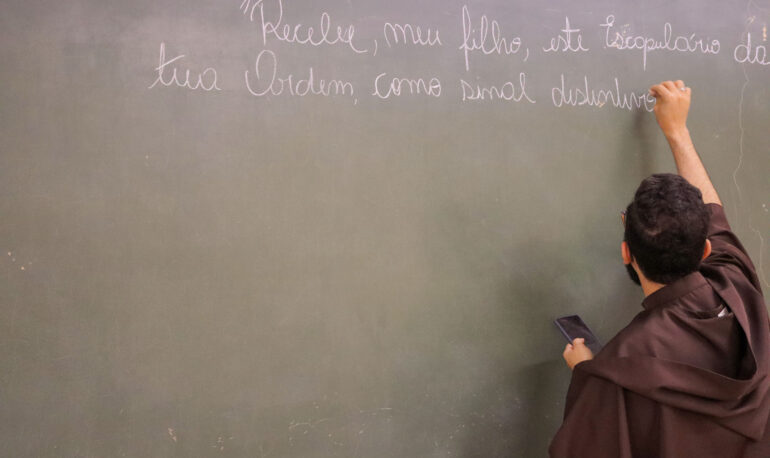 "Recebe, meu filho, este Escapulário da
tua Ordem, como sinal distintivo